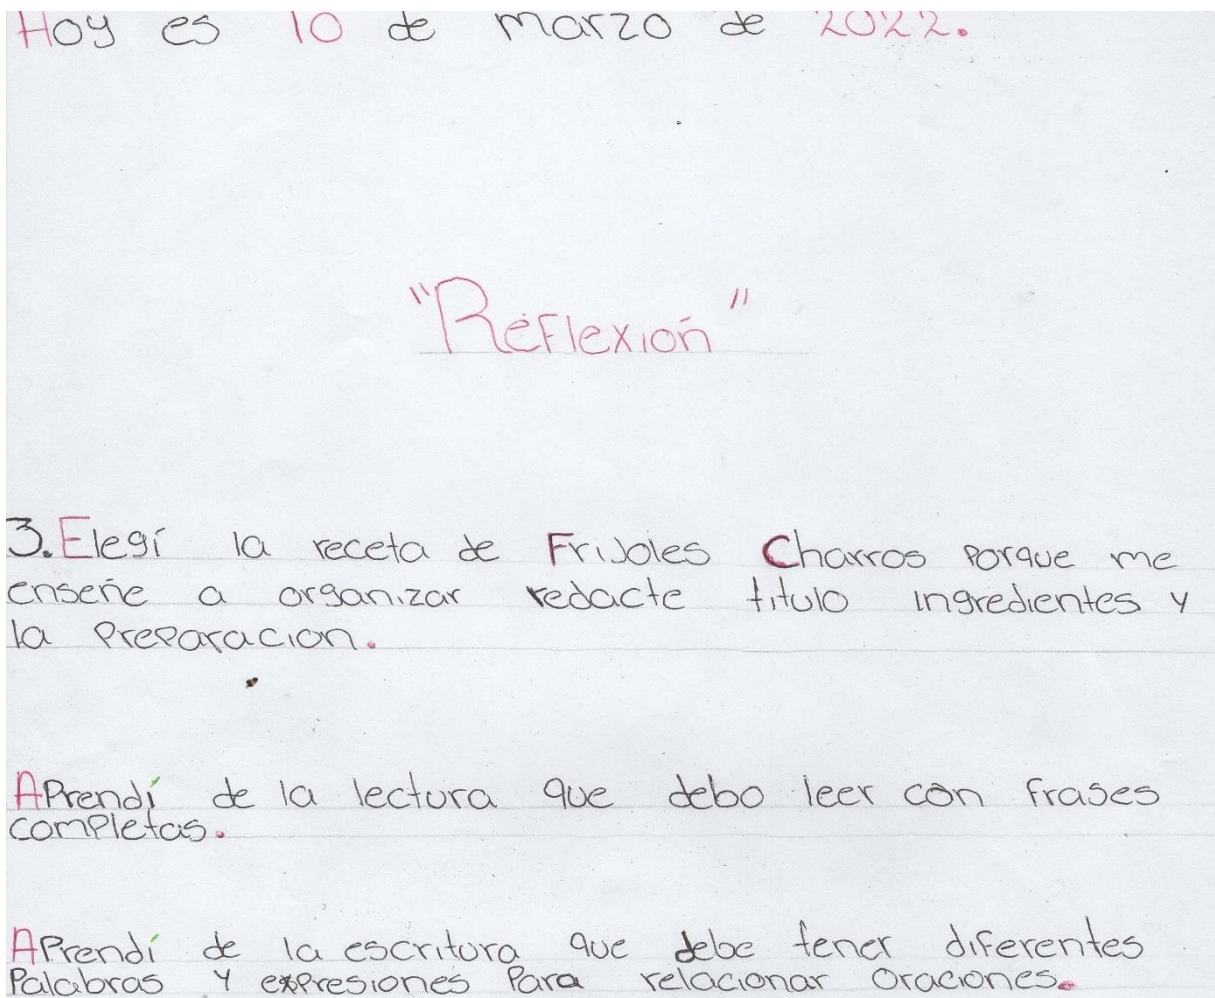 Hoy es 10 de marzo de 2022.
"Reflexión"
3. Elegí la receta de Frijoles Charros porque me
enseñe a organizar redacte titulo ingredientes y
la preparacion.
Aprendí de la lectura que debo leer con frases
completas.
Aprendí de la escritura que debe tener diferentes
Palabras y expresiones Para relacionar oraciones.